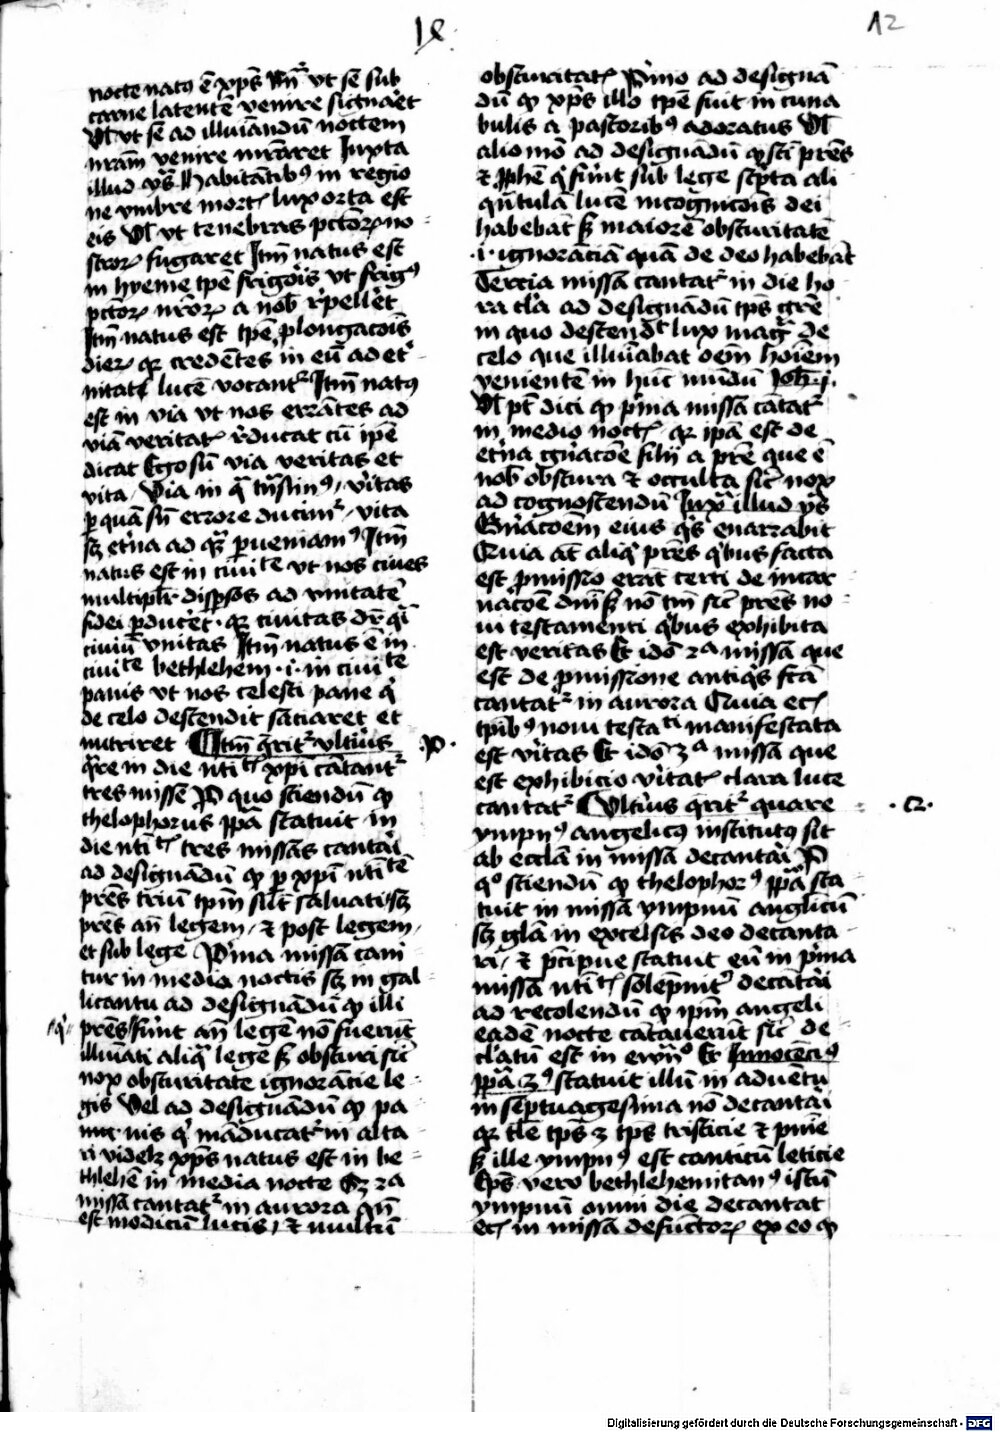 IX
12
nocte natus ē xp̄s Itm̄ ut se sub
carne latentē venire signaret
Vl ut se ad illuīandū noctem
nr̄am venire mr̄aret Iuxta
illud ys. Habitātibus in regio
ne umbre mortis lux orta est
eis Vl ut tenebras pctōrꝫ no
strorꝫ fugaret Itm̄ natus est
in hyeme tp̄e frigoīs ut frigus
pctōrꝫ nr̄orꝫ a nob̄ rꝑelleret
Itm̄ natus est tp̄e plongacōis
dierꝫ qꝛ credētes in eū ad et
nitatis lucē vocantur Itm̄ natus
est in via ut nos errātes ad
viā veritatis rducat cū ip̄e
dicat Ego sū via veritas et
vita
ꝑ quam sn̄ errore ducimur vita
sꝫ et'na ad quā ꝑveniamus Itm̄
natus est in civite ut nos cives
multiplr disꝑsos ad unitatē
fidei ꝑduceret qꝛ civitas dr̄ qī
civiū unitas Itm̄ natus ē in
civite bethlehem .i. in civite
panis ut nos celesti pane q'
de celo descendit saciaret et
nutriret Itm̄ qritur ulterius
qre in die nti'tis xp̄i cātantur
tres misse P quo sciendū qꝫ
thelophorus ppā statuit in
die nti'tis tres missas cantāi
ad designādū qꝫ ꝑ xp̄i nti'tē
pres triū tpm̄ sūt salvati sꝫ
pres an̄ legem et post legem
et sub lege Prima missa cani
tur in media noctis sꝫ in gal
licantu ad designādū qꝫ illi
pres q' fu'nt an̄ legē nō fuerūt
illuīati aliqua lege sꝫ obscuri sic
nox obscuritate ignorācie le
gis Vel ad designādū qꝫ pa
nis q' māducatur in alta
ri videlꝫ xp̄s natus est in be
thlehē in media nocte Sꝫ 2a
missa cantatur in aurora qn̄
est modicū lucis et multū
obscuritatis Primo ad designā
dū qꝫ xp̄s illo tp̄e fuit in cuna
bulis a pastoribus adoratus Vl
alio mō ad designādū qꝫ sc̄i pres
et ꝓphē q' fu'nt sub lege sc̄pta ali
qntulā lucē incognicōis dei
habebāt sꝫ maiorē obscuritatē
.i. ignorāciā quā de deo habebāt
Tercia missa cantatur in die ho
ra cla ad designādū tp̄s gr̄e
in quo descendit lux magna de
celo que illuīabat oēm hoīem
venientē in hūc mūdū Joh. i.
Vl pt̄ dici qꝫ p'ma missa cātatur
in medio noctis qꝛ ipā est de
et'na gn̄acōe filii a pre que ē
nob̄ obscura et occulta sic nox
ad cognoscendū Iuxᵃ illud ys
Gn̄acōem eius q's enarrabit
Quia at aliqui pres q'bus facta
est ꝓmissio erāt certi de incar
nacōe dn̄i sꝫ nō tm̄ sic pres no
vi testamenti q'bus exhibita
est veritas Et idō 2a missa que
est de ꝓmissione antiq's fc̄a
cantatur in aurora Quia ec
tpībus novi testati manifestata
est v'itas Et idō 3a missa que
est exhibicio v'itatis clara luce
cantatur Ulterius q'ritur quare
ympnus angelicus institutus sit
ab ecclā in missa decantāi P
qo sciendū qꝫ thelophorus ppā sta
tuit in missa ympnū anglicū
sꝫ gl̄a in excelsis deo decanta
ri et p'cipue statuit eū in p'ma
missa nti'tis solēpnitr decātāi
ad recolendū qꝫ ipm̄ angeli
eadē nocte cātaverūt sic de
clatū est in ewan° Et Innocēcius
ppā 3us statuit illū in advētu
in septuagesima nō decantāi
qꝛ tl̄e tp̄s ꝫ tp̄s tristicie et pn̄ie
sꝫ ille ympnus est canticū leticie
Ep̄s vero bethlehemitanus istū
ympnū omni die decantat
ec in missa defūctorꝫ ex eo qꝫ
.p.
.q.
Digitalisierung gefördert durch die Deutsche Forschungsgemeinschaft - DFG